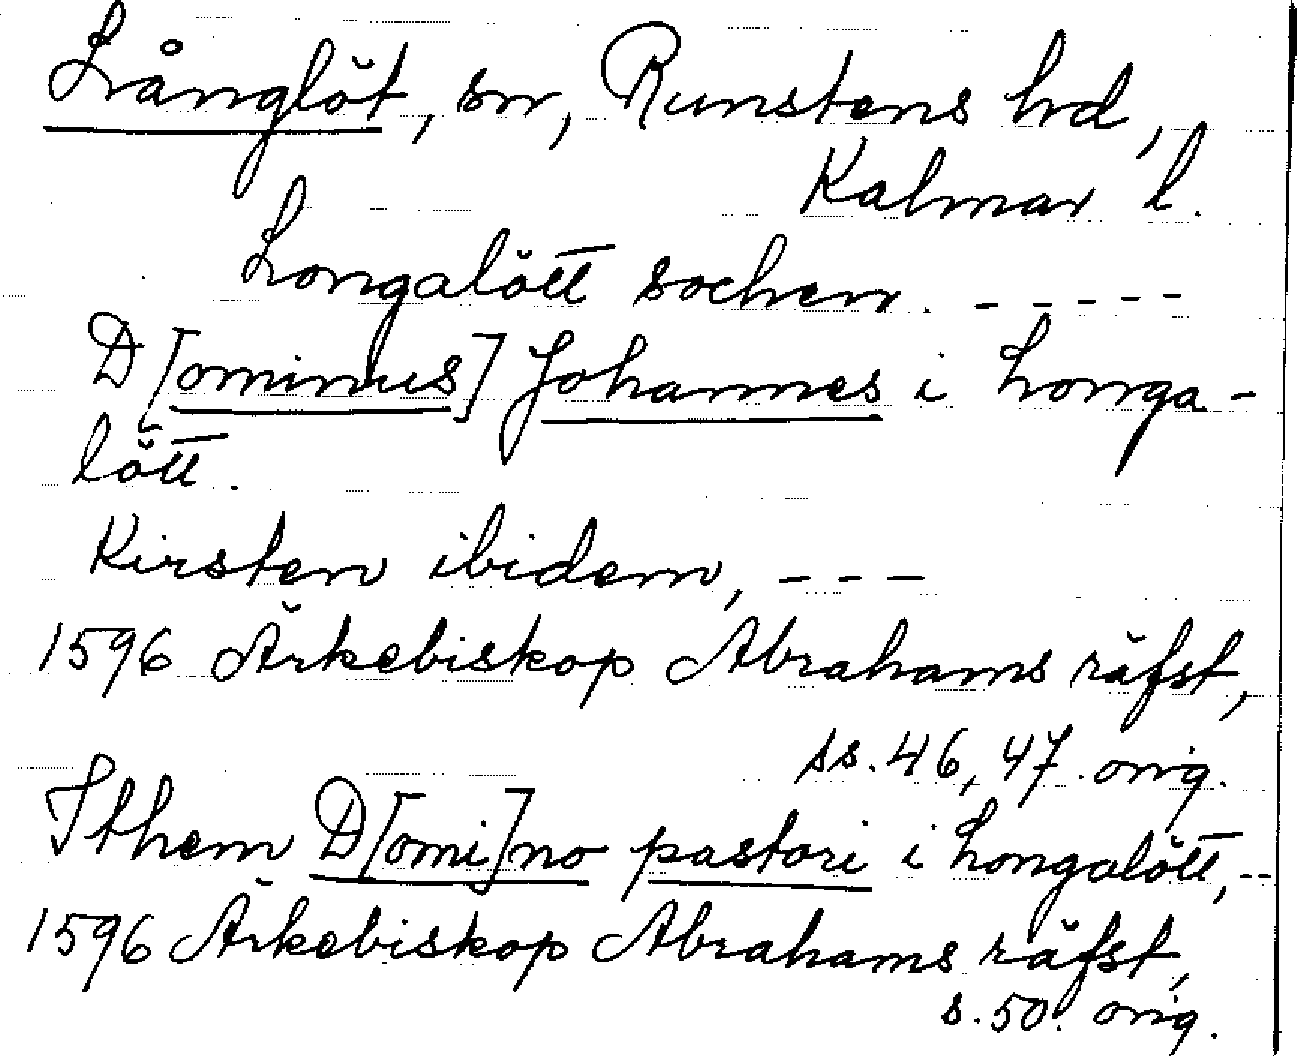 Långlöt, sn, Runstens hd,
Kalmar l.
Longalött sochen. - - - - -
D[ominus] Johannes i Longa-
lött.
Kirsten ibidem, - - -
1596 Ärkebiskop Abrahams räfst,
ss. 46, 47. orig.
Ithem D[omi]no pastori i Longalött, --
1596 Ärkebiskop Abrahams räfst,
s. 50. orig.